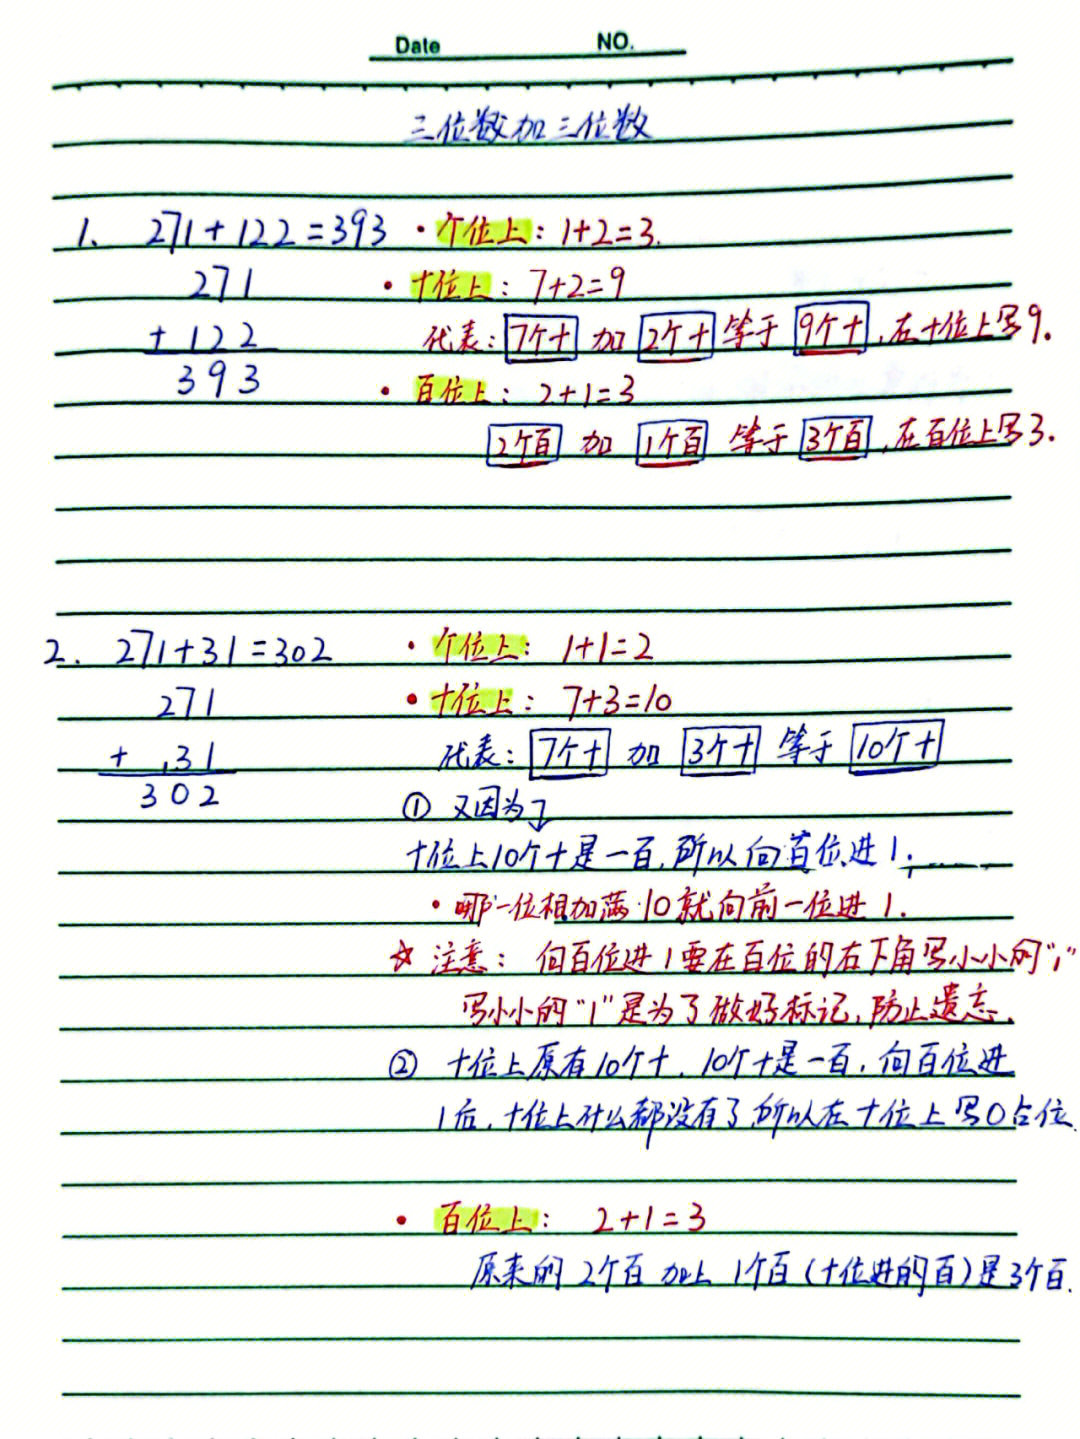 Date NO.
三位数加三位数
1、 271+122=393 ·个位上：1+2=3.
271 ·十位上：7+2=9
+ 122 代表：7个十 加 2个十 等于 9个十，在十位上写9.
393 ·百位上：2+1=3
2个百 加 1个百 等于 3个百，在百位上写3.
2. 271+31=302 ·个位上： 1+1=2
271 ·十位上： 7+3=10
+ 31 代表：7个十 加 3个十 等于 10个十
302 ① 又因为
十位上10个十是一百，所以向百位进1；
·哪一位相加满10就向前一位进1.
☆ 注意： 向百位进1要在百位的右下角写小小的“1”
写小小的“1”是为了做好标记，防止遗忘.
② 十位上原有10个十，10个十是一百，向百位进
1后，十位上什么都没有了，所以在十位上写0占位.
·百位上： 2+1=3
原来的2个百加上1个百（十位进的百）是3个百.